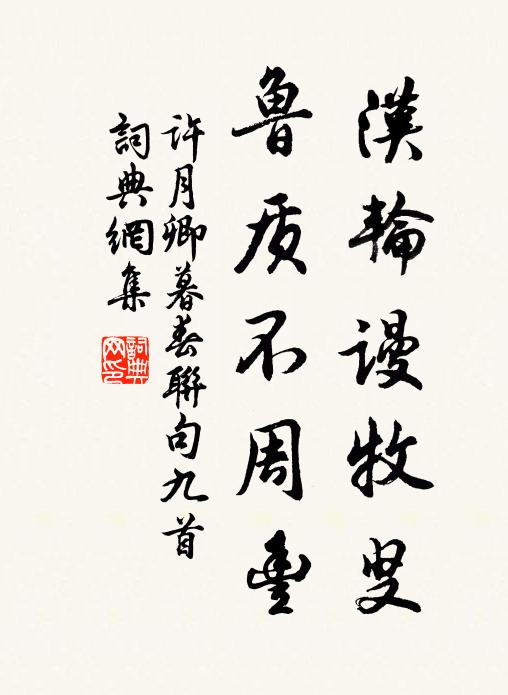 漢輪謾牧叟
魯质不周豐
许月卿暮春聯句九首
詞典網集
詞典網印